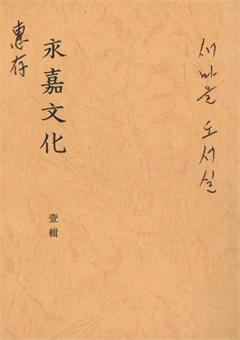 새마을 도서실
永嘉文化
壹輯
惠存